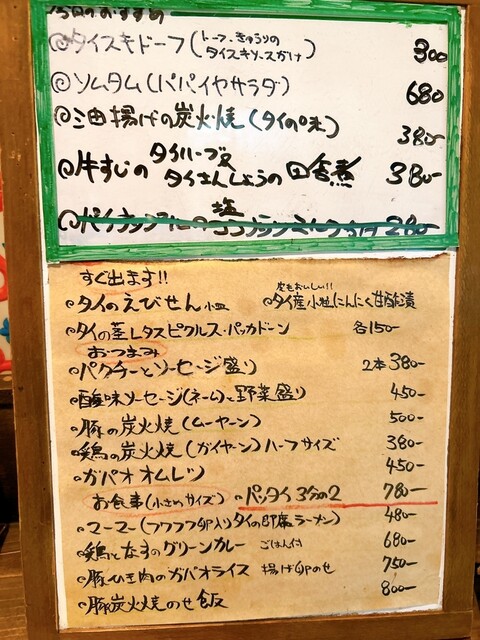 今日のおすすめ
◎タイスキドーフ(トーフ・きゅうりのタイスキソースかけ) 300
◎ソムタム(パパイヤサラダ) 680
◎油揚げの炭火焼(タイの味) 380-
◎牛すじのタイハーブ及タイさんしょうの田舎煮 380-
塩
すぐ出ます!!
皮もおいしい!!
◎タイのえびせん 小皿 ◎タイ産小粒にんにく甘酢漬
◎タイの茎レタスピクルス・パッカドーン 各150-
おつまみ
◎パクチーとソーセージ盛り 2本 380-
◎酸味ソーセージ(ネーム)と野菜盛り 450-
◎豚の炭火焼(ムーヤーン) 500-
◎鶏の炭火焼(ガイヤーン)ハーフサイズ 380-
◎ガパオオムレツ 450-
お食事(小さめサイズ) ◎パッタイ3分の2 780-
◎マーマー(フワフワ卵入りタイの即席ラーメン) 480-
◎鶏となすのグリーンカレー ごはん付 680-
◎豚ひき肉のガパオライス 揚げ卵のせ 750-
◎豚炭火焼のせ飯 800-